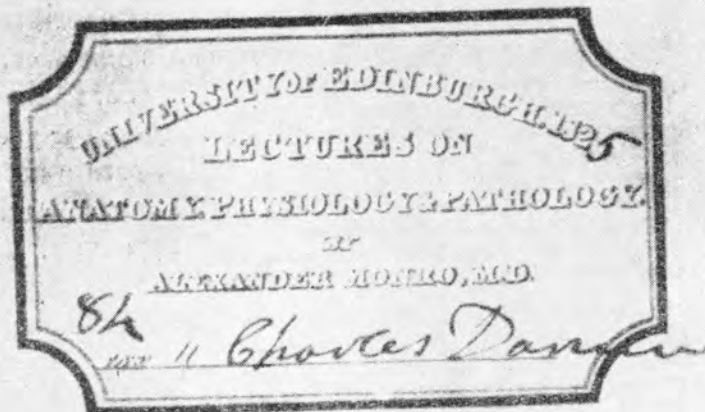 UNIVERSITY OF EDINBURGH. 1825
LECTURES ON
ANATOMY. PHYSIOLOGY & PATHOLOGY.
BY
ALEXANDER MONRO, M.D.
84
FOR " Charles Darwin